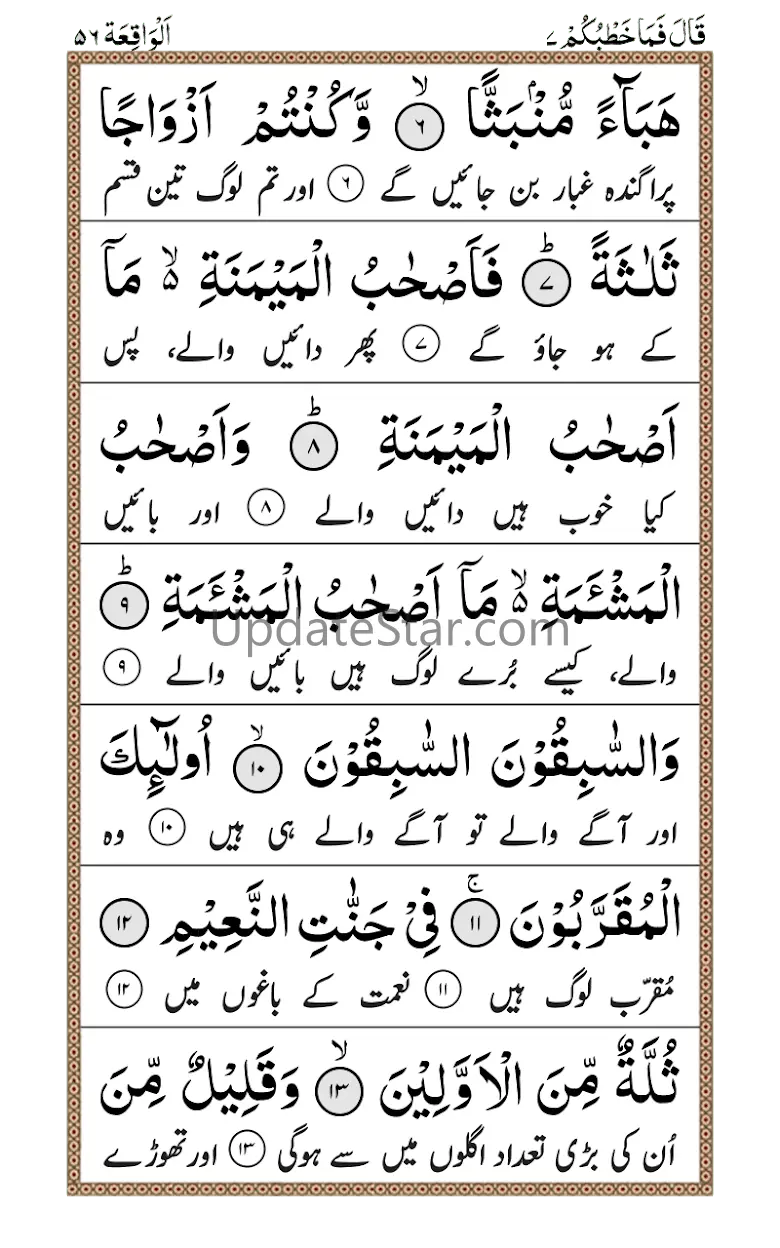 قَالَ فَمَا خَطْبُكُمْ ٧
اَلْوَاقِعَة ٥٦
هَبَآءً مُّنْۢبَثًّا ۙ‏﴿٦﴾ وَّكُنْتُمْ اَزْوَاجًا
پراگندہ غبار بن جائیں گے ﴿٦﴾ اور تم لوگ تین قسم
ثَلٰثَةً ؕ‏﴿٧﴾ فَاَصْحٰبُ الْمَيْمَنَةِ ۙ۬ مَاۤ
کے ہو جاؤ گے ﴿٧﴾ پھر دائیں والے، پس
اَصْحٰبُ الْمَيْمَنَةِ ؕ‏﴿٨﴾ وَاَصْحٰبُ
کیا خوب ہیں دائیں والے ﴿٨﴾ اور بائیں
الْمَشْــَٔمَةِ ۙ۬ مَاۤ اَصْحٰبُ الْمَشْــَٔمَةِ ؕ‏﴿٩﴾
UpdateStar.com
والے، کیسے بُرے لوگ ہیں بائیں والے ﴿٩﴾
وَالسّٰبِقُوْنَ السّٰبِقُوْنَ ۙ‏﴿١٠﴾ اُولٰٓئِكَ
اور آگے والے تو آگے والے ہی ہیں ﴿١٠﴾ وہ
الْمُقَرَّبُوْنَ ۚ‏﴿١١﴾ فِيْ جَنّٰتِ النَّعِيْمِ ﴿١٢﴾
مُقرّب لوگ ہیں ﴿١١﴾ نعمت کے باغوں میں ﴿١٢﴾
ثُلَّةٌ مِّنَ الْاَوَّلِيْنَ ۙ‏﴿١٣﴾ وَقَلِيْلٌ مِّنَ
اُن کی بڑی تعداد اگلوں میں سے ہوگی ﴿١٣﴾ اور تھوڑے